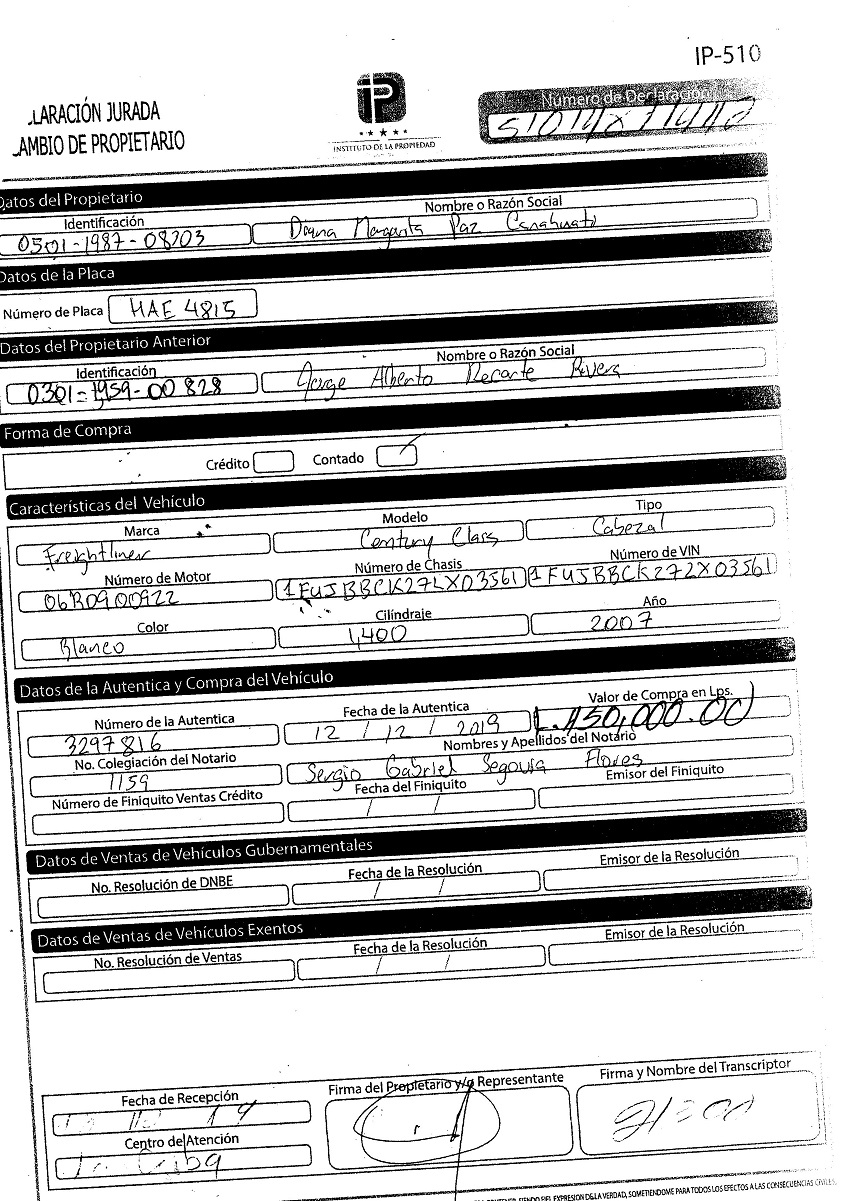 IP-510
LARACIÓN JURADA
AMBIO DE PROPIETARIO
iP
INSTITUTO DE LA PROPIEDAD
Número de Declaración
Datos del Propietario
Identificación
Nombre o Razón Social
0501-1987-08303
Margarita Paz
Datos de la Placa
Número de Placa HAE 4815
Datos del Propietario Anterior
Identificación
Nombre o Razón Social
0301-1959-00828
Jorge Alberto Recarte Rivera
Forma de Compra
Crédito
Contado
Características del Vehículo
Marca
Modelo
Tipo
Freightliner
Century Class
Cabezal
Número de Motor
Número de Chasis
Número de VIN
06R0900922
1FUJBBCK27LX03561
1FUJBBCK272X03561
Color
Cilíndraje
Año
Blanco
1,400
2007
Datos de la Autentica y Compra del Vehículo
Número de la Autentica
Fecha de la Autentica
Valor de Compra en Lps.
3297816
12 / 12 / 2019
L.150,000.00
No. Colegiación del Notario
Nombres y Apellidos del Notario
1159
Sergio Gabriel Segovia Flores
Número de Finiquito Ventas Crédito
Fecha del Finiquito
Emisor del Finiquito
/ /
Datos de Ventas de Vehículos Gubernamentales
No. Resolución de DNBE
Fecha de la Resolución
Emisor de la Resolución
/ /
Datos de Ventas de Vehículos Exentos
No. Resolución de Ventas
Fecha de la Resolución
Emisor de la Resolución
/ /
Fecha de Recepción
Firma del Propietario y/o Representante
Firma y Nombre del Transcriptor
Centro de Atención
La Ceiba
EXPRESION DE LA VERDAD, SOMETIENDOME PARA TODOS LOS EFECTOS A LAS CONSECUENCIAS CIVILES,